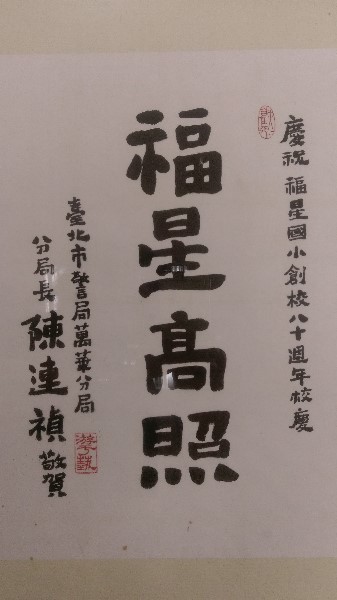 慶祝福星國小創校八十週年校慶
福星高照
臺北市警局萬華分局
分局長陳連禎敬賀